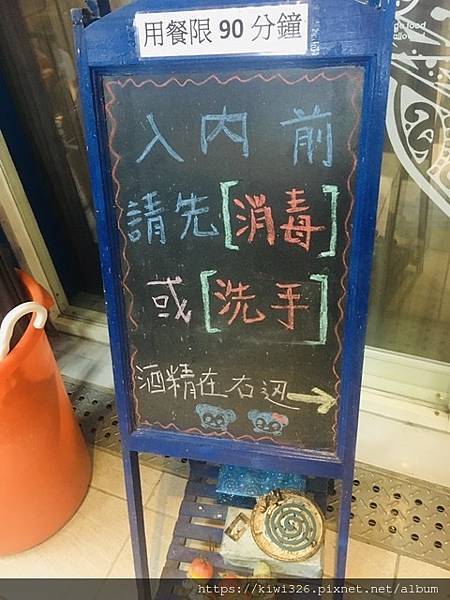 用餐限 90 分鐘
入內前
請先[消毒]
或[洗手]
酒精在右边→
https://kiwi326.pixnet.net/album